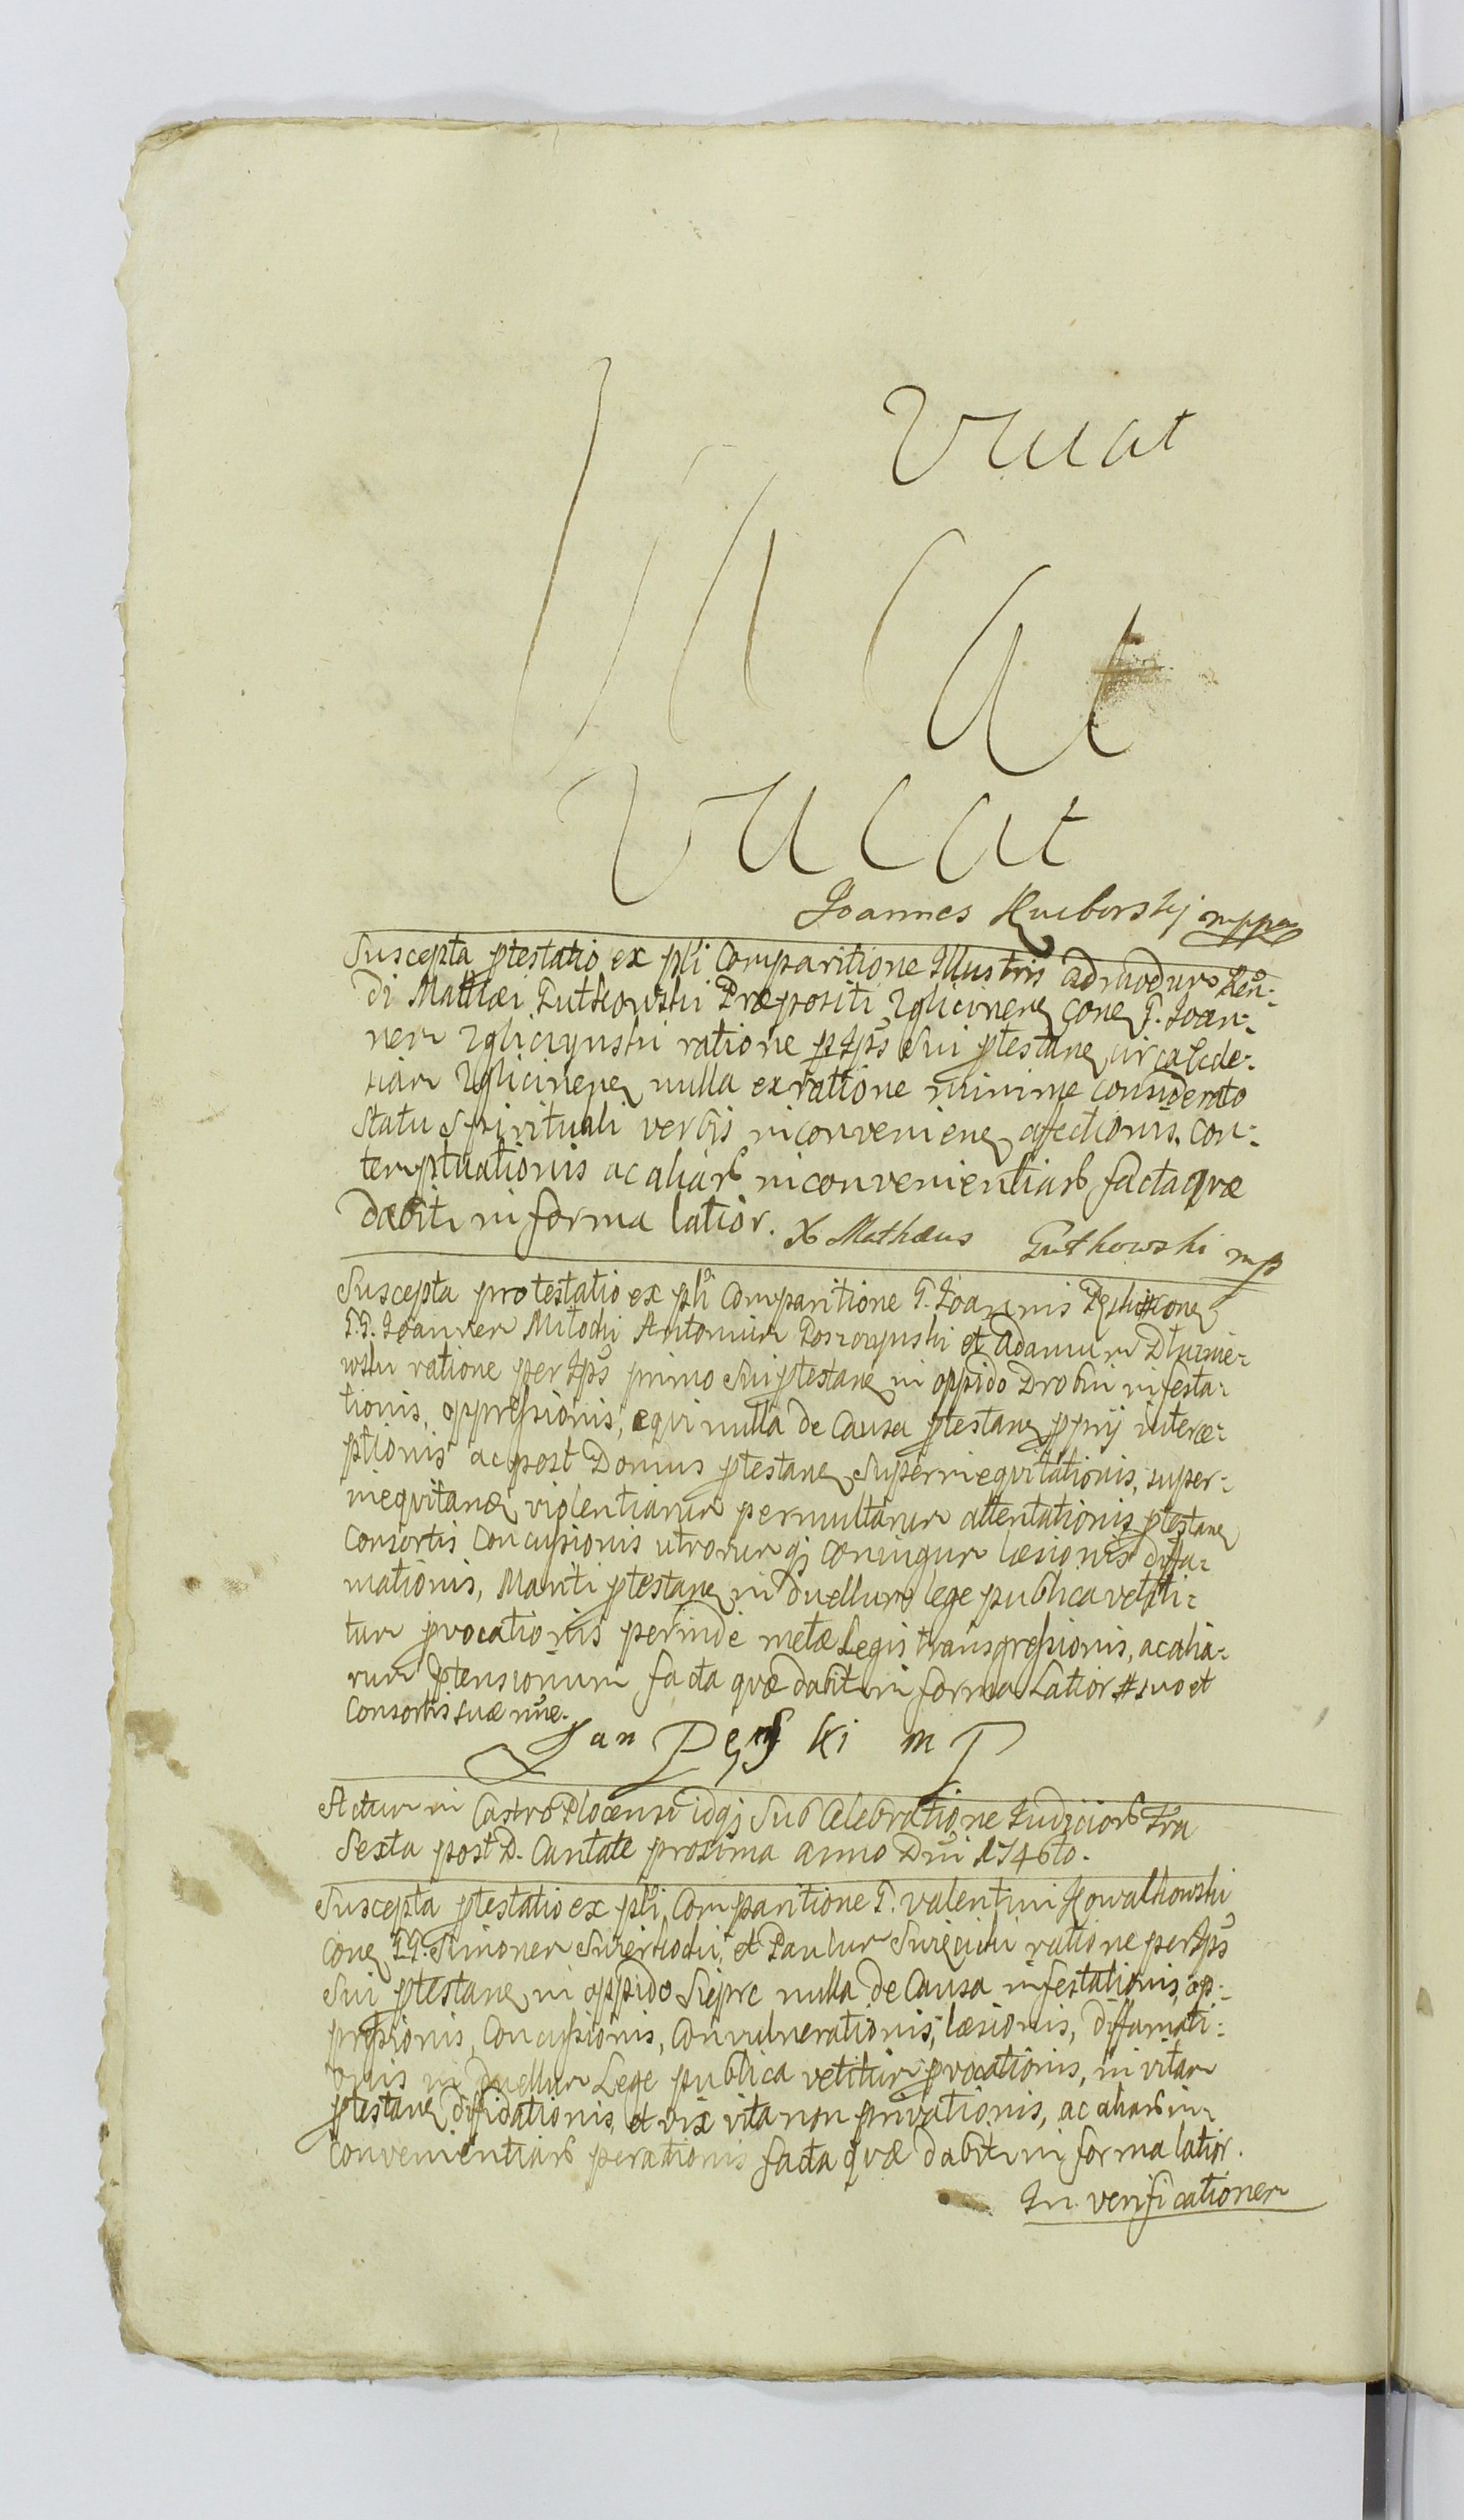 Vacat
Vacat
Vacat
Joannes mppa
Suscepta ptestatio ex pli Comparitione Illustris admodum Reṽn:
di Matthæi Gutkowski Præpositi Zglicinen cone G. Joan:
nem Zgliczynski ratione p Ips̃ sui ptestane circa Eccle:
siam Zglicinene nulla ex ratione minime considerato
Statu Spirituali verbis inconveniene afectionis, con:
temptuationis ac aliarb inconvenientiarb facta qvæ
dabitr in forma latior. X Mathæus Gutkowski mp
Suscepta protestatio ex pli Comparitione G. Joannis Pęski # cone
G.G. Joannem Młocki Antonium et Adamum
wski ratione per Ips̃ primo sui ptestane in oppido Drobin infesta:
tionis, oppressionis, eqvi nulla de Causa ptestane pprij interce:
ptionis ac post Domus ptestane superineqvitationis, super:
ineqvitane violentiarum permultarum attentationis ptestane
Consortis Concussionis utrorumqȝ Coniugum læsionis diffa:
mationis, Mariti ptestane in duellum lege publica vetiti:
tum pvocationis perinde metæ Legis transgressionis, ac alia:
rum Ptensionum facta qvæ dabitr in forma Latior # suo et
Consortis suæ nñe.
Jan Pęski mp
Actum in Castro Plocensi idqȝ sub Celebratione Judiciorb Fria
Sexta post D. Cantate proxima Anno Dñi 1746to.
Suscepta ptestatio ex pli Comparitione G. Valentini Kowalkowski
cone GG. Simonem et Paulum ratione per Ips̃
sui ptestane in oppido Sieprc nulla de Causa infestationis, op:
pressionis, Concussionis, Convulnerationis, læsionis, diffamati:
onis in Duellum Lege publica vetitum pvocationis, in vitam
ptestane diffidationis, et vix vita non privationis, ac aliarb in:
convenientiarb perationis facta qvæ dabitr in forma latior.
In verificationem